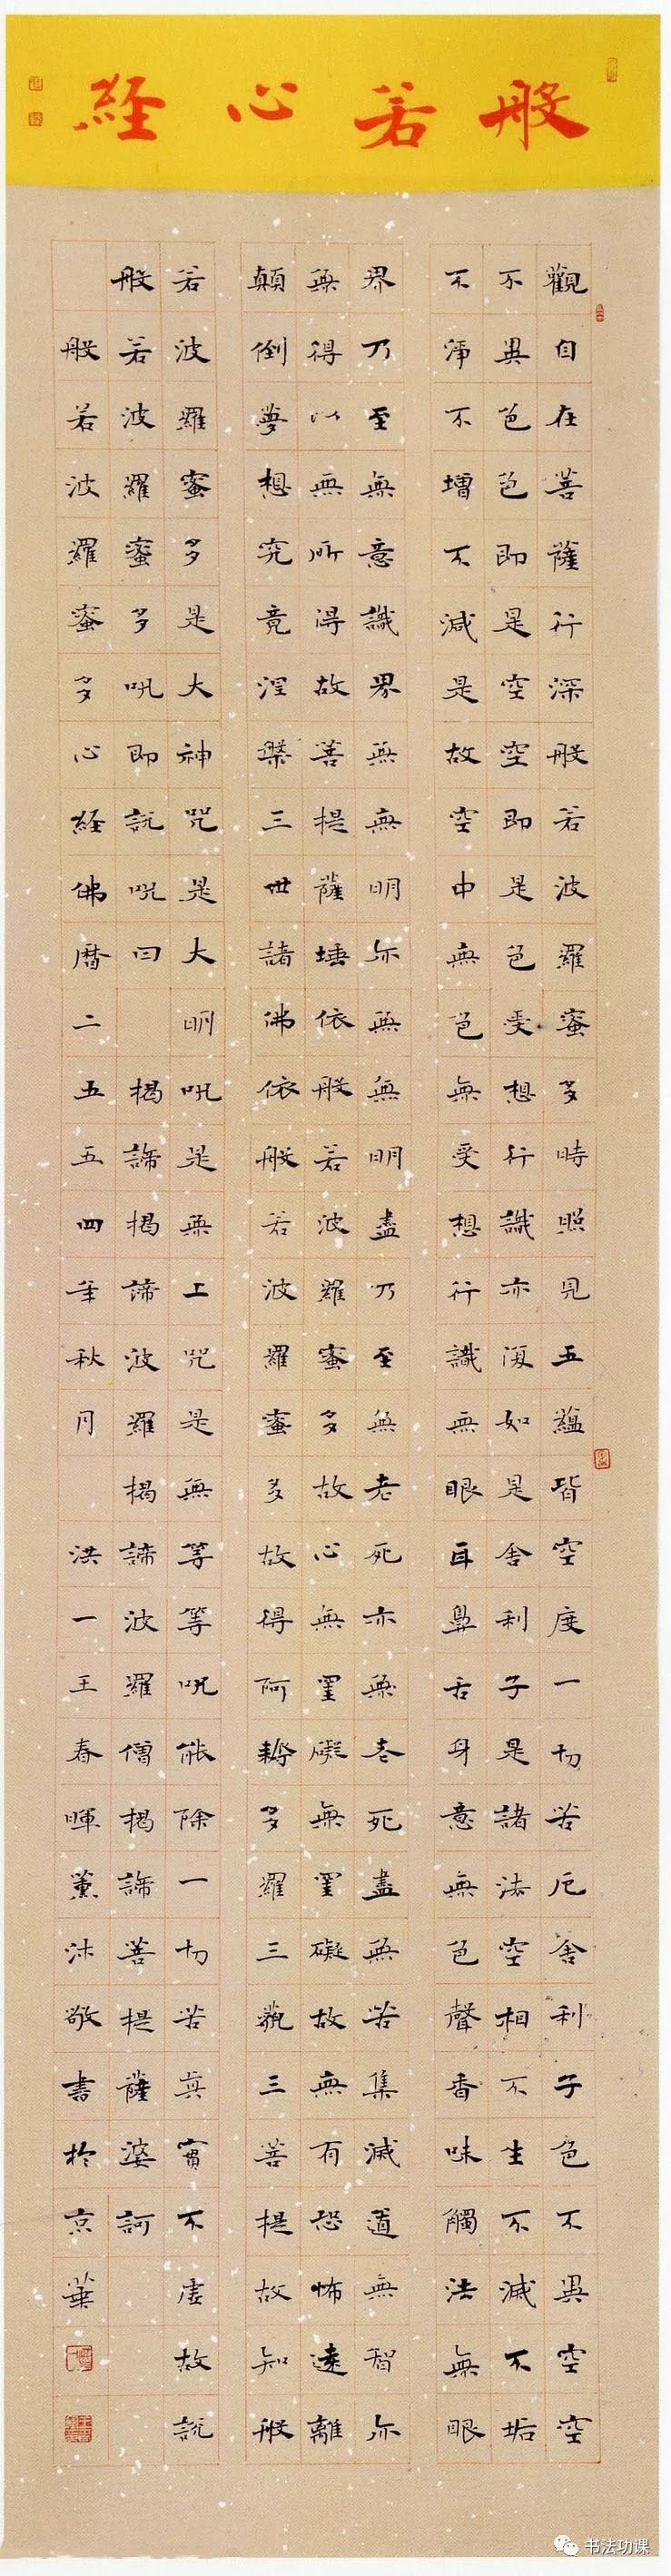 般若心経
觀自在菩薩行深般若波羅蜜多時照見五蘊皆空度一切苦厄舍利子色不異空空
不異色色即是空空即是色受想行識亦復如是舍利子是諸法空相不生不滅不垢
不淨不增不減是故空中無色無受想行識無眼耳鼻舌身意無色聲香味觸法無眼
界乃至無意識界無無明亦無無明盡乃至無老死亦無老死盡無苦集滅道無智亦
無得以無所得故菩提薩埵依般若波羅蜜多故心無罣礙無罣礙故無有恐怖遠離
顛倒夢想究竟涅槃三世諸佛依般若波羅蜜多故得阿耨多羅三藐三菩提故知般
若波羅蜜多是大神咒是大明咒是無上咒是無等等咒能除一切苦真實不虛故說
般若波羅蜜多咒即說咒曰 揭諦揭諦波羅揭諦波羅僧揭諦菩提薩婆訶
般若波羅蜜多心経佛曆二五五四年秋月 洪一王春暉薰沐敬書於京華
书法功课